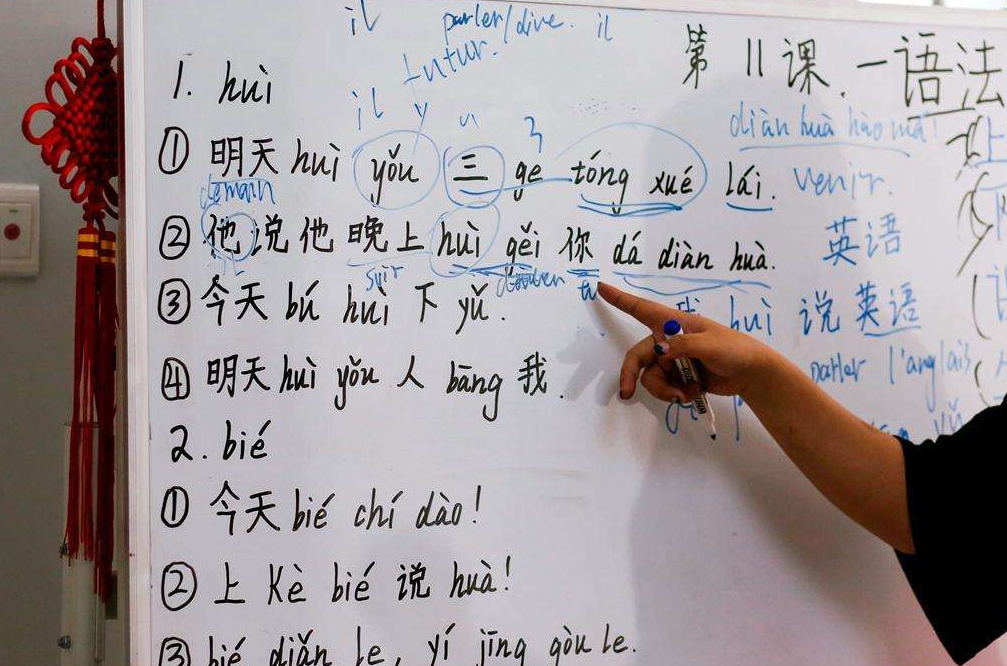 il parler/dire. il
futur.
第11课.一语法
1. huì
il y
diàn huà hào mǎ!
① 明天 huì yǒu 三 ge tóng xué lái. venir.
demain
② 他说他晚上 huì gěi 你 dá diàn huà. 英语
soir tu
③ 今天 bú huì 下 yǔ. huì 说英语
④ 明天 huì yǒu 人 bāng 我. parler l'anglais
2. bié
① 今天 bié chí dào!
② 上 Kè bié 说 huà!
③ bié diǎn le, yí jīng gòu le.